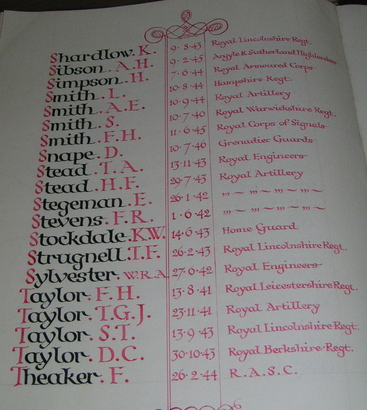 Shardlow. K. 9·8·43 Royal Lincolnshire Regt.
Sibson. A.H. 9·2·45 Argyle & Sutherland Highlanders
Simpson. H. 7·6·44 Royal Armoured Corps
Smith. L. 10·8·44 Hampshire Regt.
Smith. A.E. 10·9·44 Royal Artillery
Smith. S. 10·7·40 Royal Warwickshire Regt.
Smith. F.H. 11·6·45 Royal Corps of Signals
Snape. D. 10·7·46 Grenadier Guards
Stead. T.A. 13·11·43 Royal Engineers
Stead. H.F. 20·7·43 Royal Artillery
Stegeman. E. 26·1·42 〃 〃
Stevens. F.R. 1·6·42 〃 〃
Stockdale. K.W. 14·6·43 Home Guard
Strugnell. T.F. 26·2·43 Royal Lincolnshire Regt.
Sylvester. W.R.A. 27·6·42 Royal Engineers
Taylor. F.H. 13·8·41 Royal Leicestershire Regt.
Taylor. T.G.J. 23·11·41 Royal Artillery
Taylor. S.T. 13·9·43 Royal Lincolnshire Regt.
Taylor. D.C. 30·10·43 Royal Berkshire Regt.
Theaker. F. 26·2·44 R.A.S.C.